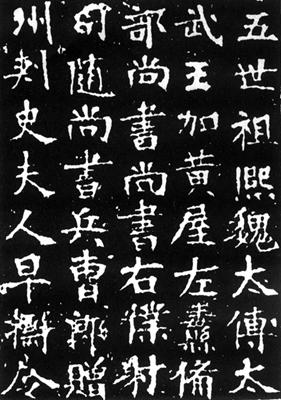 五世祖熙魏太傅太
武王加黄屋左纛備
部尚書尚書右僕射
隨尚書兵曹郎贈
州刾史夫人早令